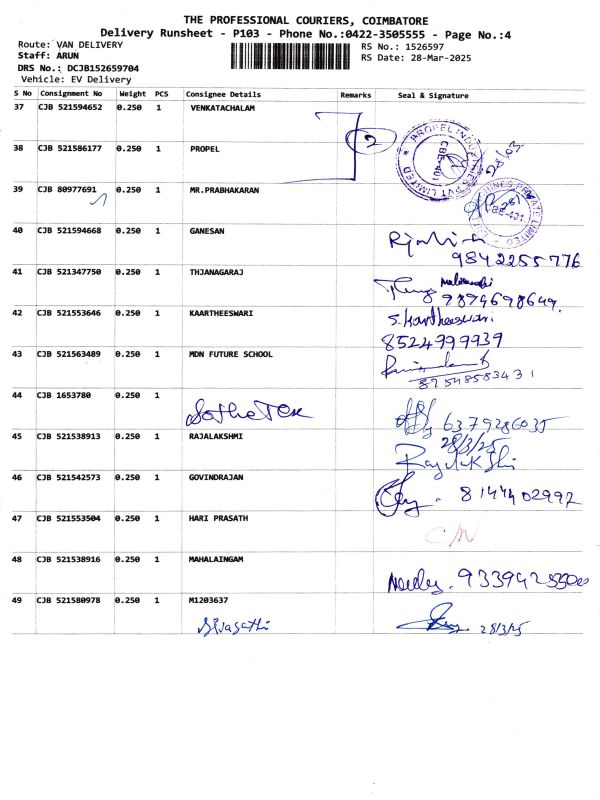 THE PROFESSIONAL COURIERS, COIMBATORE
Delivery Runsheet - P103 - Phone No.:0422-3505555 - Page No.:4
Route: VAN DELIVERY
RS No.: 1526597
Staff: ARUN
RS Date: 28-Mar-2025
DRS No.: DCJB152659704
Vehicle: EV Delivery
S No Consignment No Weight PCS Consignee Details Remarks Seal & Signature
37 CJB 521594652 0.250 1 VENKATACHALAM
38 CJB 521586177 0.250 1 PROPEL
2
PROPEL INDUSTRIES PVT LIMITED
CBE-401
28/03
39 CJB 80977691 0.250 1 MR.PRABHAKARAN
40 CJB 521594668 0.250 1 GANESAN
9842255776
41 CJB 521347750 0.250 1 THJANAGARAJ
9894698649
42 CJB 521553646 0.250 1 KAARTHEESWARI
S. Kaartheeswari
8524999939
43 CJB 521563489 0.250 1 MDN FUTURE SCHOOL
8754858343 1
44 CJB 1653780 0.250 1
6379286035
28/3/25
45 CJB 521538913 0.250 1 RAJALAKSHMI
46 CJB 521542573 0.250 1 GOVINDRAJAN
8144402992
47 CJB 521553504 0.250 1 HARI PRASATH
C/N
48 CJB 521538916 0.250 1 MAHALAINGAM
49 CJB 521580978 0.250 1 M1203637
28/3/25